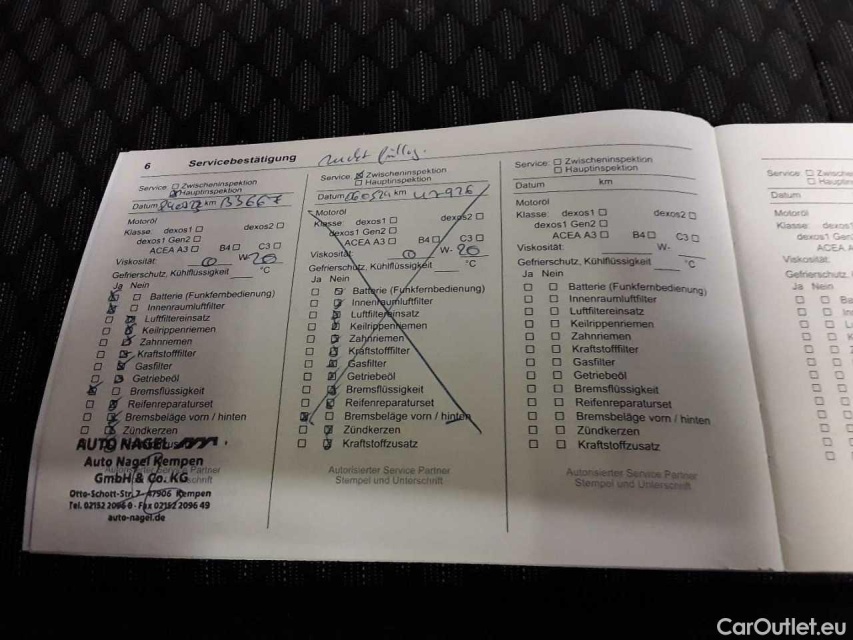 6 Servicebestätigung
Service: Zwischeninspektion
Hauptinspektion
Datum km
Motoröl
Klasse: dexos1 dexos2
dexos1 Gen2
ACEA A3 B4 C3
Viskosität: 0 W- 20
Gefrierschutz, Kühlflüssigkeit °C
Ja Nein
Batterie (Funkfernbedienung)
Innenraumluftfilter
Luftfiltereinsatz
Keilrippenriemen
Zahnriemen
Kraftstofffilter
Gasfilter
Getriebeöl
Bremsflüssigkeit
Reifenreparaturset
Bremsbeläge vorn / hinten
Zündkerzen
AUTO NAGEL
Auto Nagel Kempen
GmbH & Co. KG
Otto-Schott-Str. 7 47906 Kempen
Tel. 02152 2096-0 · Fax 02152 2096 49
auto-nagel.de
nicht
Service: Zwischeninspektion
Hauptinspektion
Datum km
Motoröl
Klasse: dexos1 dexos2
dexos1 Gen2
ACEA A3 B4 C3
Viskosität: 0 W- 20
Gefrierschutz, Kühlflüssigkeit °C
Ja Nein
Batterie (Funkfernbedienung)
Innenraumluftfilter
Luftfiltereinsatz
Keilrippenriemen
Zahnriemen
Kraftstofffilter
Gasfilter
Getriebeöl
Bremsflüssigkeit
Reifenreparaturset
Bremsbeläge vorn / hinten
Zündkerzen
Kraftstoffzusatz
Autorisierter Service Partner
Stempel und Unterschrift
Service: Zwischeninspektion
Hauptinspektion
Datum km
Motoröl
Klasse: dexos1 dexos2
dexos1 Gen2
ACEA A3 B4 C3
Viskosität: W-
Gefrierschutz, Kühlflüssigkeit °C
Ja Nein
Batterie (Funkfernbedienung)
Innenraumluftfilter
Luftfiltereinsatz
Keilrippenriemen
Zahnriemen
Kraftstofffilter
Gasfilter
Getriebeöl
Bremsflüssigkeit
Reifenreparaturset
Bremsbeläge vorn / hinten
Zündkerzen
Kraftstoffzusatz
Autorisierter Service Partner
Stempel und Unterschrift
Service:
Datum
Motoröl
Klasse: dexos1
dexos1 Gen2
ACEA A
Viskosität:
Gefrierschutz,
Ja Nein
CarOutlet.eu